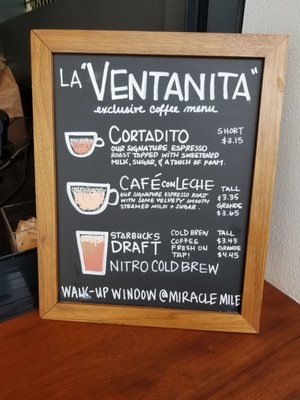 LA "VENTANITA"
exclusive coffee menu
CORTADITO
OUR SIGNATURE ESPRESSO
ROAST TOPPED WITH SWEETENED
MILK, SUGAR, & A TOUCH OF FOAM.
SHORT
$3.15
CAFÉ CON LECHE
OUR SIGNATURE ESPRESSO ROAST
WITH SOME VELVETY SMOOTH
STEAMED MILK + SUGAR.
TALL
$3.35
GRANDE
$3.65
STARBUCKS
DRAFT
NITRO COLD BREW
COLD BREW
COFFEE
FRESH ON
TAP!
TALL
$3.45
GRANDE
$4.45
WALK-UP WINDOW @ MIRACLE MILE